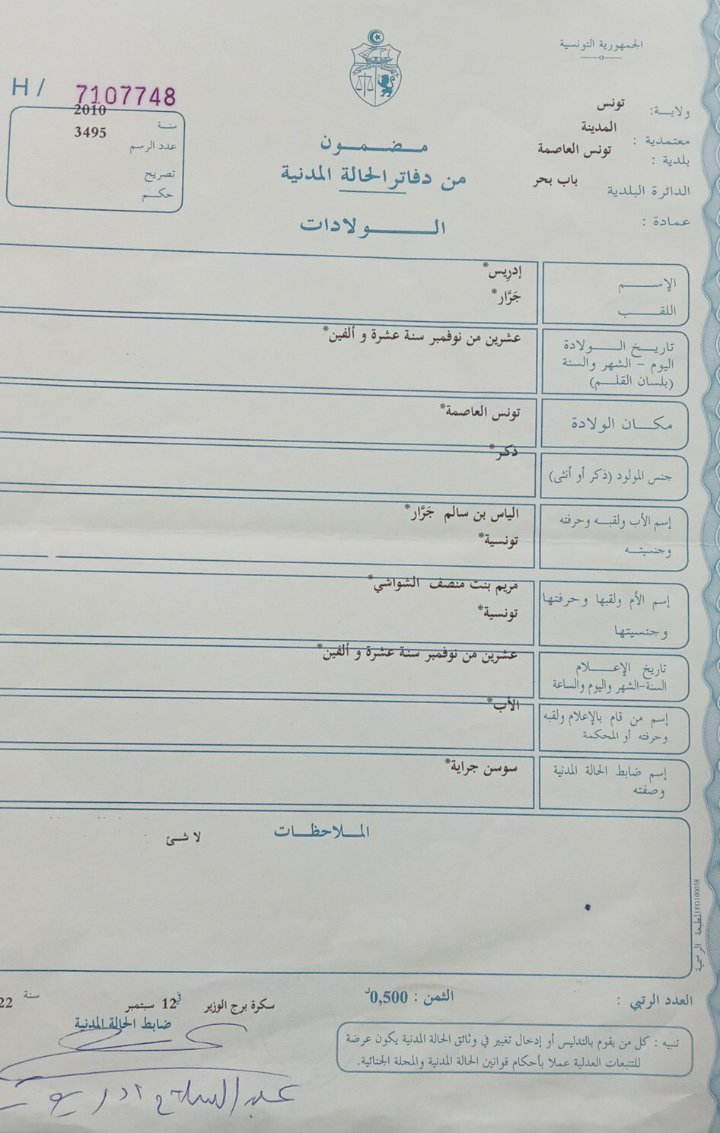 الجمهورية التونسية
ولاية: تونس
معتمدية : المدينة
بلدية : تونس العاصمة
الدائرة البلدية باب بحر
عمادة :
H / 7107748
سنة 2010
عدد الرسم 3495
تصريح
حكم
مضمون
من دفاتر الحالة المدنية
الولادات
الإسم إدريس*
اللقب جَرَّار*
تاريخ الولادة عشرين من نوفمبر سنة عشرة و ألفين*
اليوم - الشهر والسنة
(بلسان القلم)
مكان الولادة تونس العاصمة*
جنس المولود (ذكر أو أنثى) ذكر*
إسم الأب ولقبه وحرفته الياس بن سالم جَرَّار*
وجنسيته تونسية*
إسم الأم ولقبها وحرفتها مريم بنت منصف الشواشي*
وجنسيتها تونسية*
تاريخ الإعلام عشرين من نوفمبر سنة عشرة و ألفين*
السنة-الشهر واليوم والساعة
إسم من قام بالإعلام ولقبه الأب*
وحرفته أو المحكمة
إسم ضابط الحالة المدنية سوسن جراية*
وصفته
الملاحظات لا شئ
المطبعة الرسمية
العدد الرتبي : الثمن : 0,500د
سكرة برج الوزير في 12 سبتمبر سنة 22
ضابط الحالة المدنية
تنبيه : كل من يقوم بالتدليس أو إدخال تغيير في وثائق الحالة المدنية يكون عرضة
للتتبعات العدلية عملا بأحكام قوانين الحالة المدنية والمجلة الجنائية.